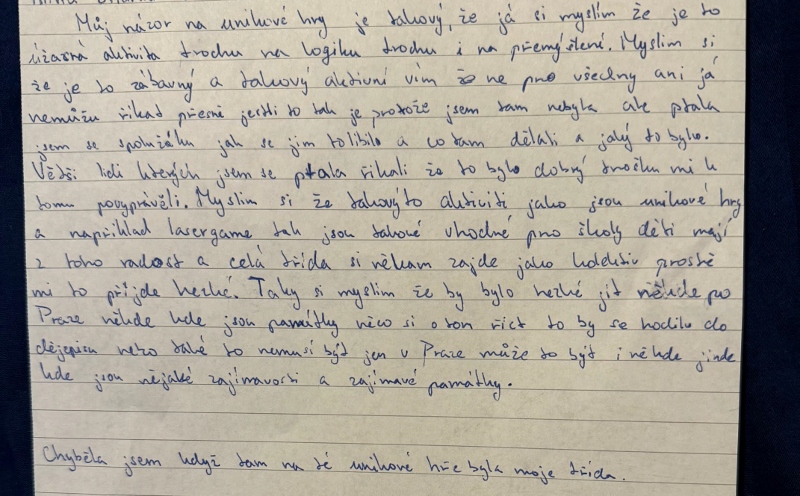 Můj názor na unikové hry je takový, že já si myslim že je to
úžasná aktivita trochu na logiku trochu i na přemýšlení. Myslim si
že je to zábavný a takový aktivní vím že ne pro všechny ani já
nemůžu řikat přesně jestli to tak je protože jsem tam nebyla ale ptala
jsem se spolužáku jak se jim to libilo a co tam dělali a jaký to bylo.
Větši lidi kterých jsem se ptala řikali že to bylo dobrý trošku mi k
tomu povyprávěli. Myslim si že takovýto aktiviti jako jsou unikové hry
a napřiklad lasergame tak jsou takové vhodné pro školy děti mají
z toho radost a celá třída si někam zajde jako kolektiv prostě
mi to přijde hezké. Taky si myslim že by bylo hezké jít někde po
Praze někde kde jsou památky něco si o tom řict to by se hodilo do
dějepisu nebo také to nemusí být jen v Praze může to být i někde jinde
kde jsou nějaké zajímavosti a zajímavé památky.
Chyběla jsem když tam na té unikové hře byla moje třída.